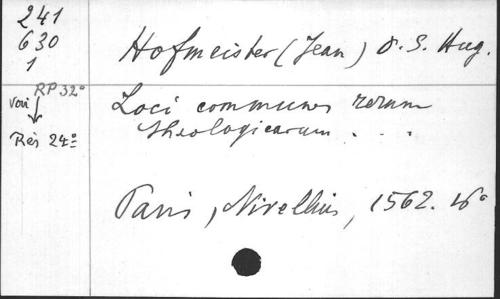 241
630
1
Hofmeister (Jean) O. S. Aug.
RP 32°
voir
Rés 24°
Loci communes rerum
theologicarum . . .
Paris, Nivellius, 1562. 16°